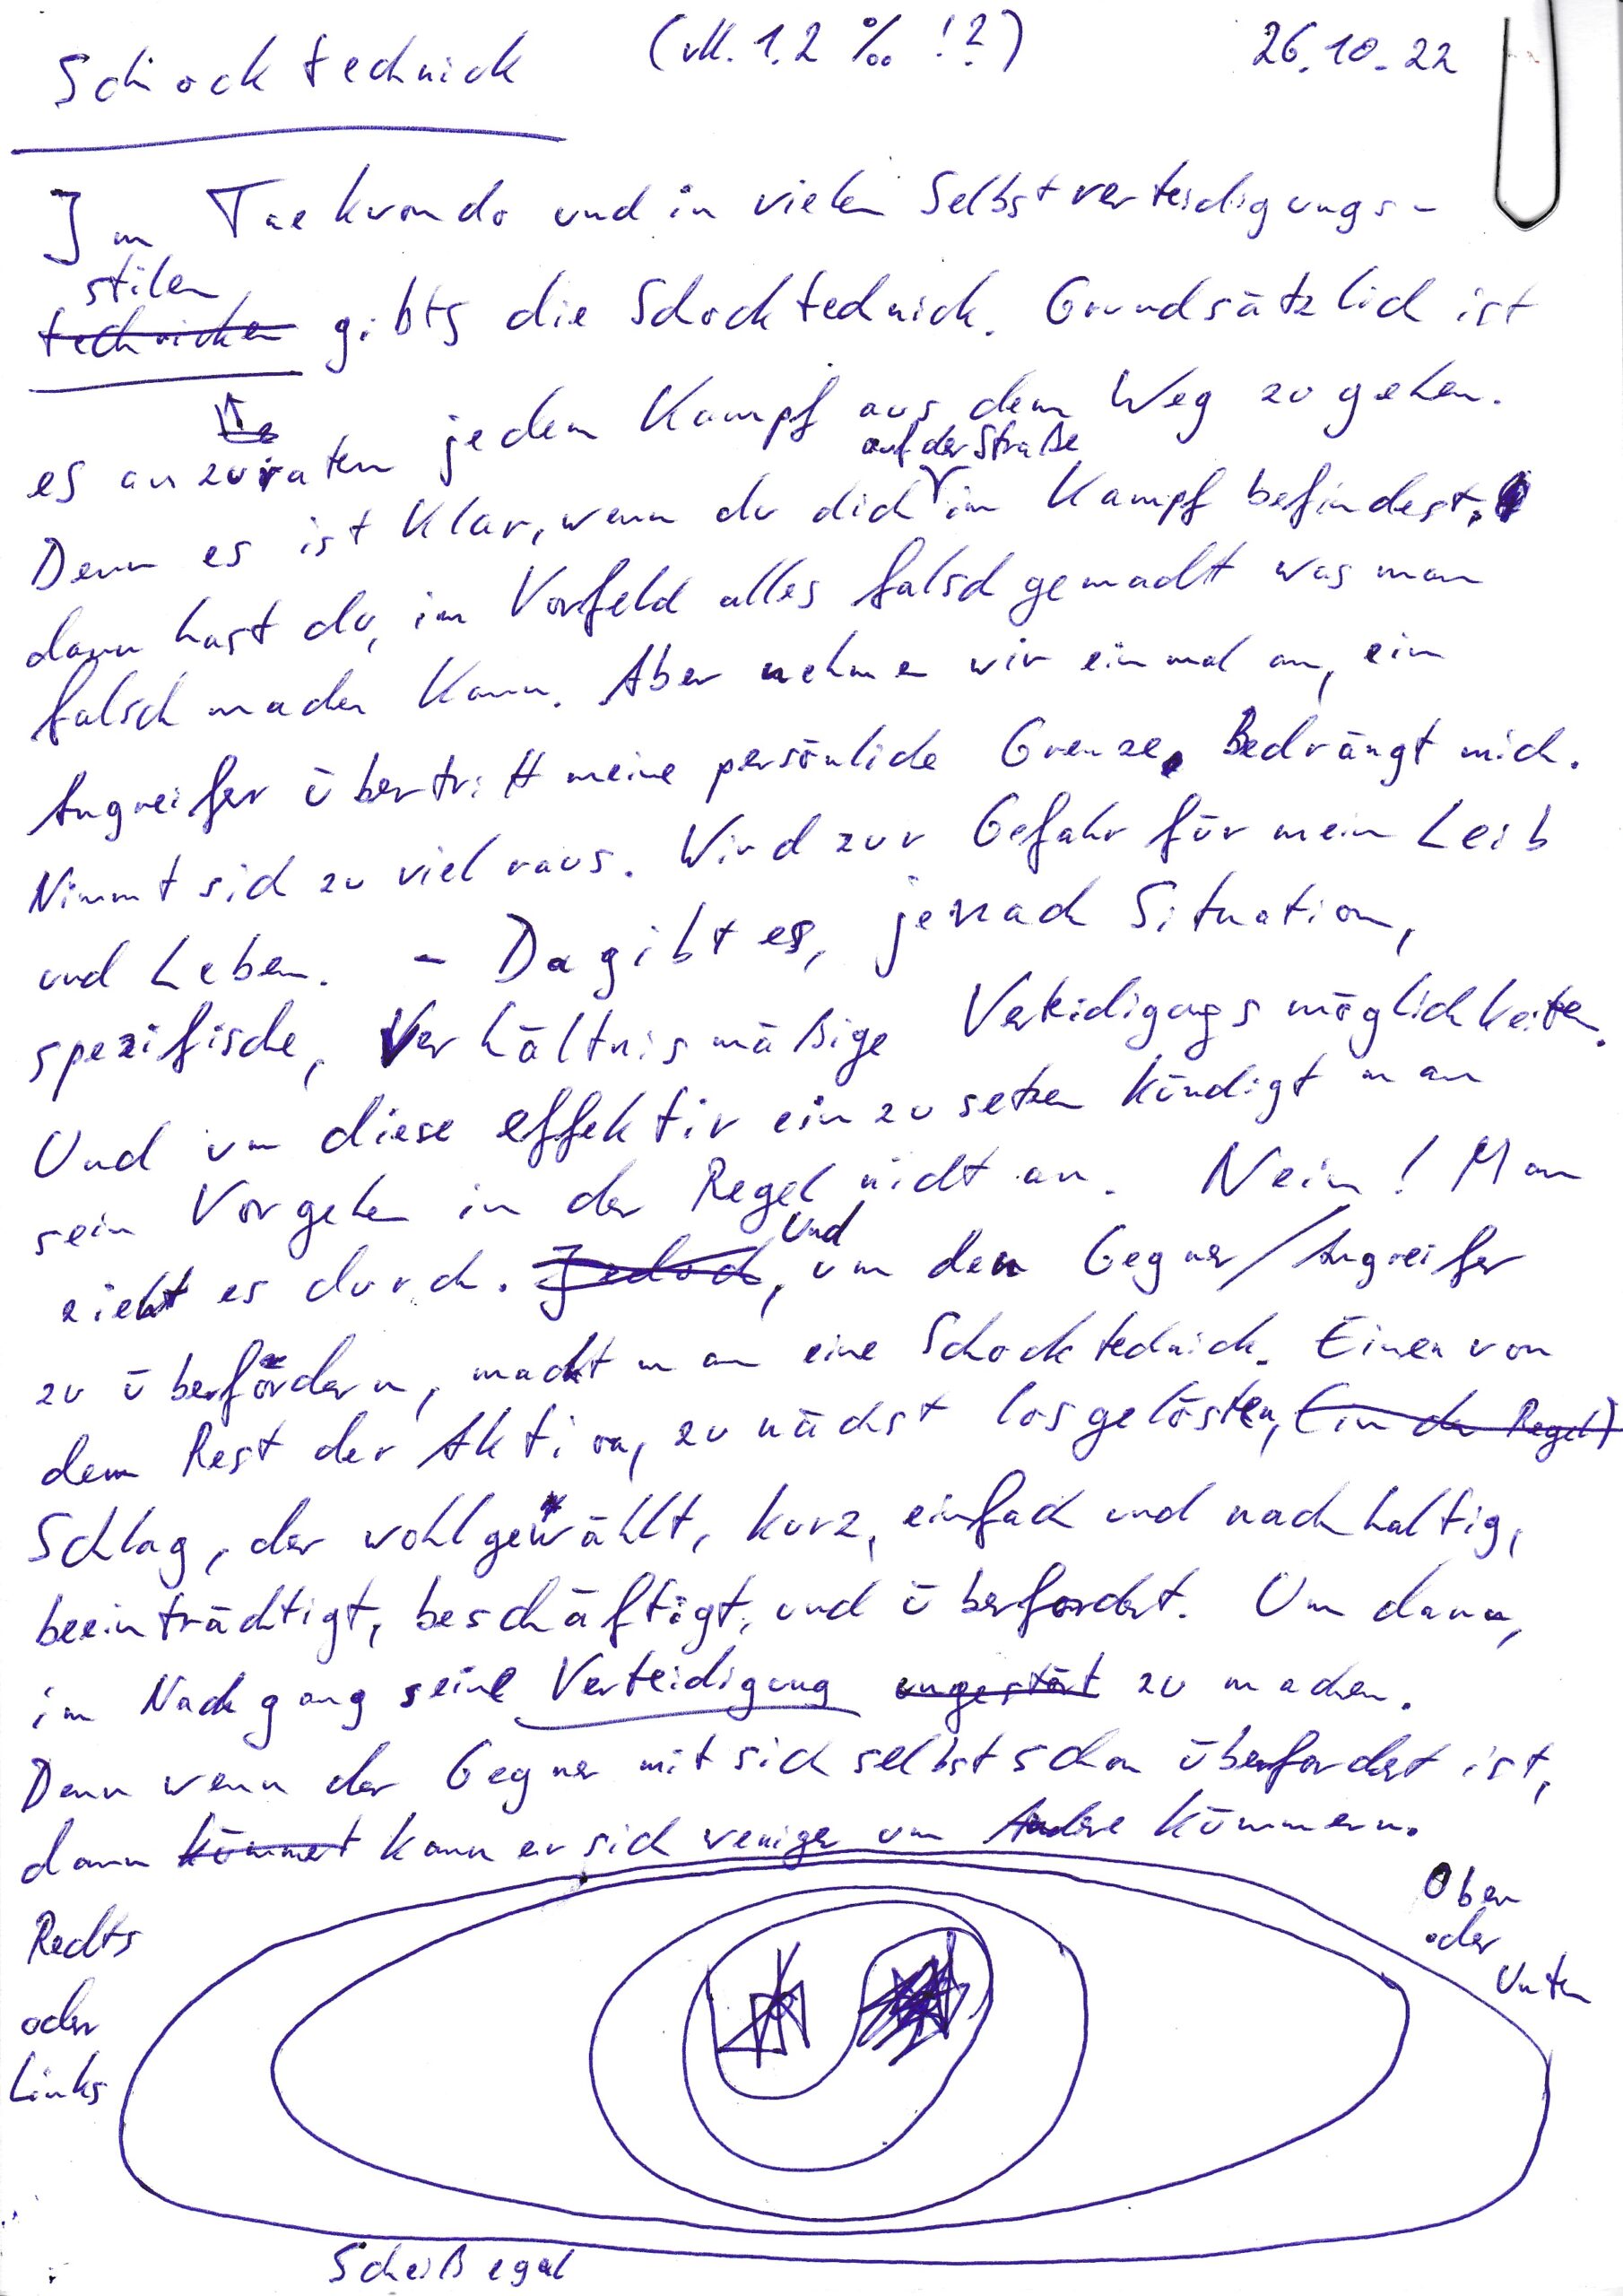 Schocktechnick (vll. 1,2 ‰ !?) 26.10.22
Im Taekwondo und in vielen Selbstverteidigungs-
stilen
technicken gibts die Schocktechnick. Grundsätzlich ist
es anzuraten jedem Kampf aus dem Weg zu gehen.
auf der Straße
Denn es ist Klar, wenn du dich im Kampf befindest,
dann hast du, im Vorfeld alles falsch gemacht was man
falsch machen kann. Aber nehmen wir einmal an, ein
Angreifer übertritt meine persönliche Grenze, Bedrängt mich.
Nimmt sich zu viel raus. Wird zur Gefahr für mein Leib
und Leben. - Da gibt es, jenach Situation,
spezifische, Verhältnismäßige Verteidigungsmöglichkeiten.
Und um diese effektiv einzusetzen kündigt man
sein Vorgehen in der Regel nicht an. Nein! Man
und
zieht es durch. Jedoch, um den Gegner/Angreifer
zu überfordern, macht man eine Schocktechnick. Einen von
dem Rest der Aktion, zunächst losgelösten, (in der Regel)
Schlag, der wohlgewählt, kurz, einfach und nachhaltig,
beeinträchtigt, beschäftigt, und überfordert. Um dann,
im Nachgang seine Verteidigung ungestört zu machen.
Denn wenn der Gegner mit sich selbst schon überfordert ist,
dann kümmert kann er sich weniger um Andre kümmern.
Rechts
oder
Links
Oben
oder
Unten
Scheißegal